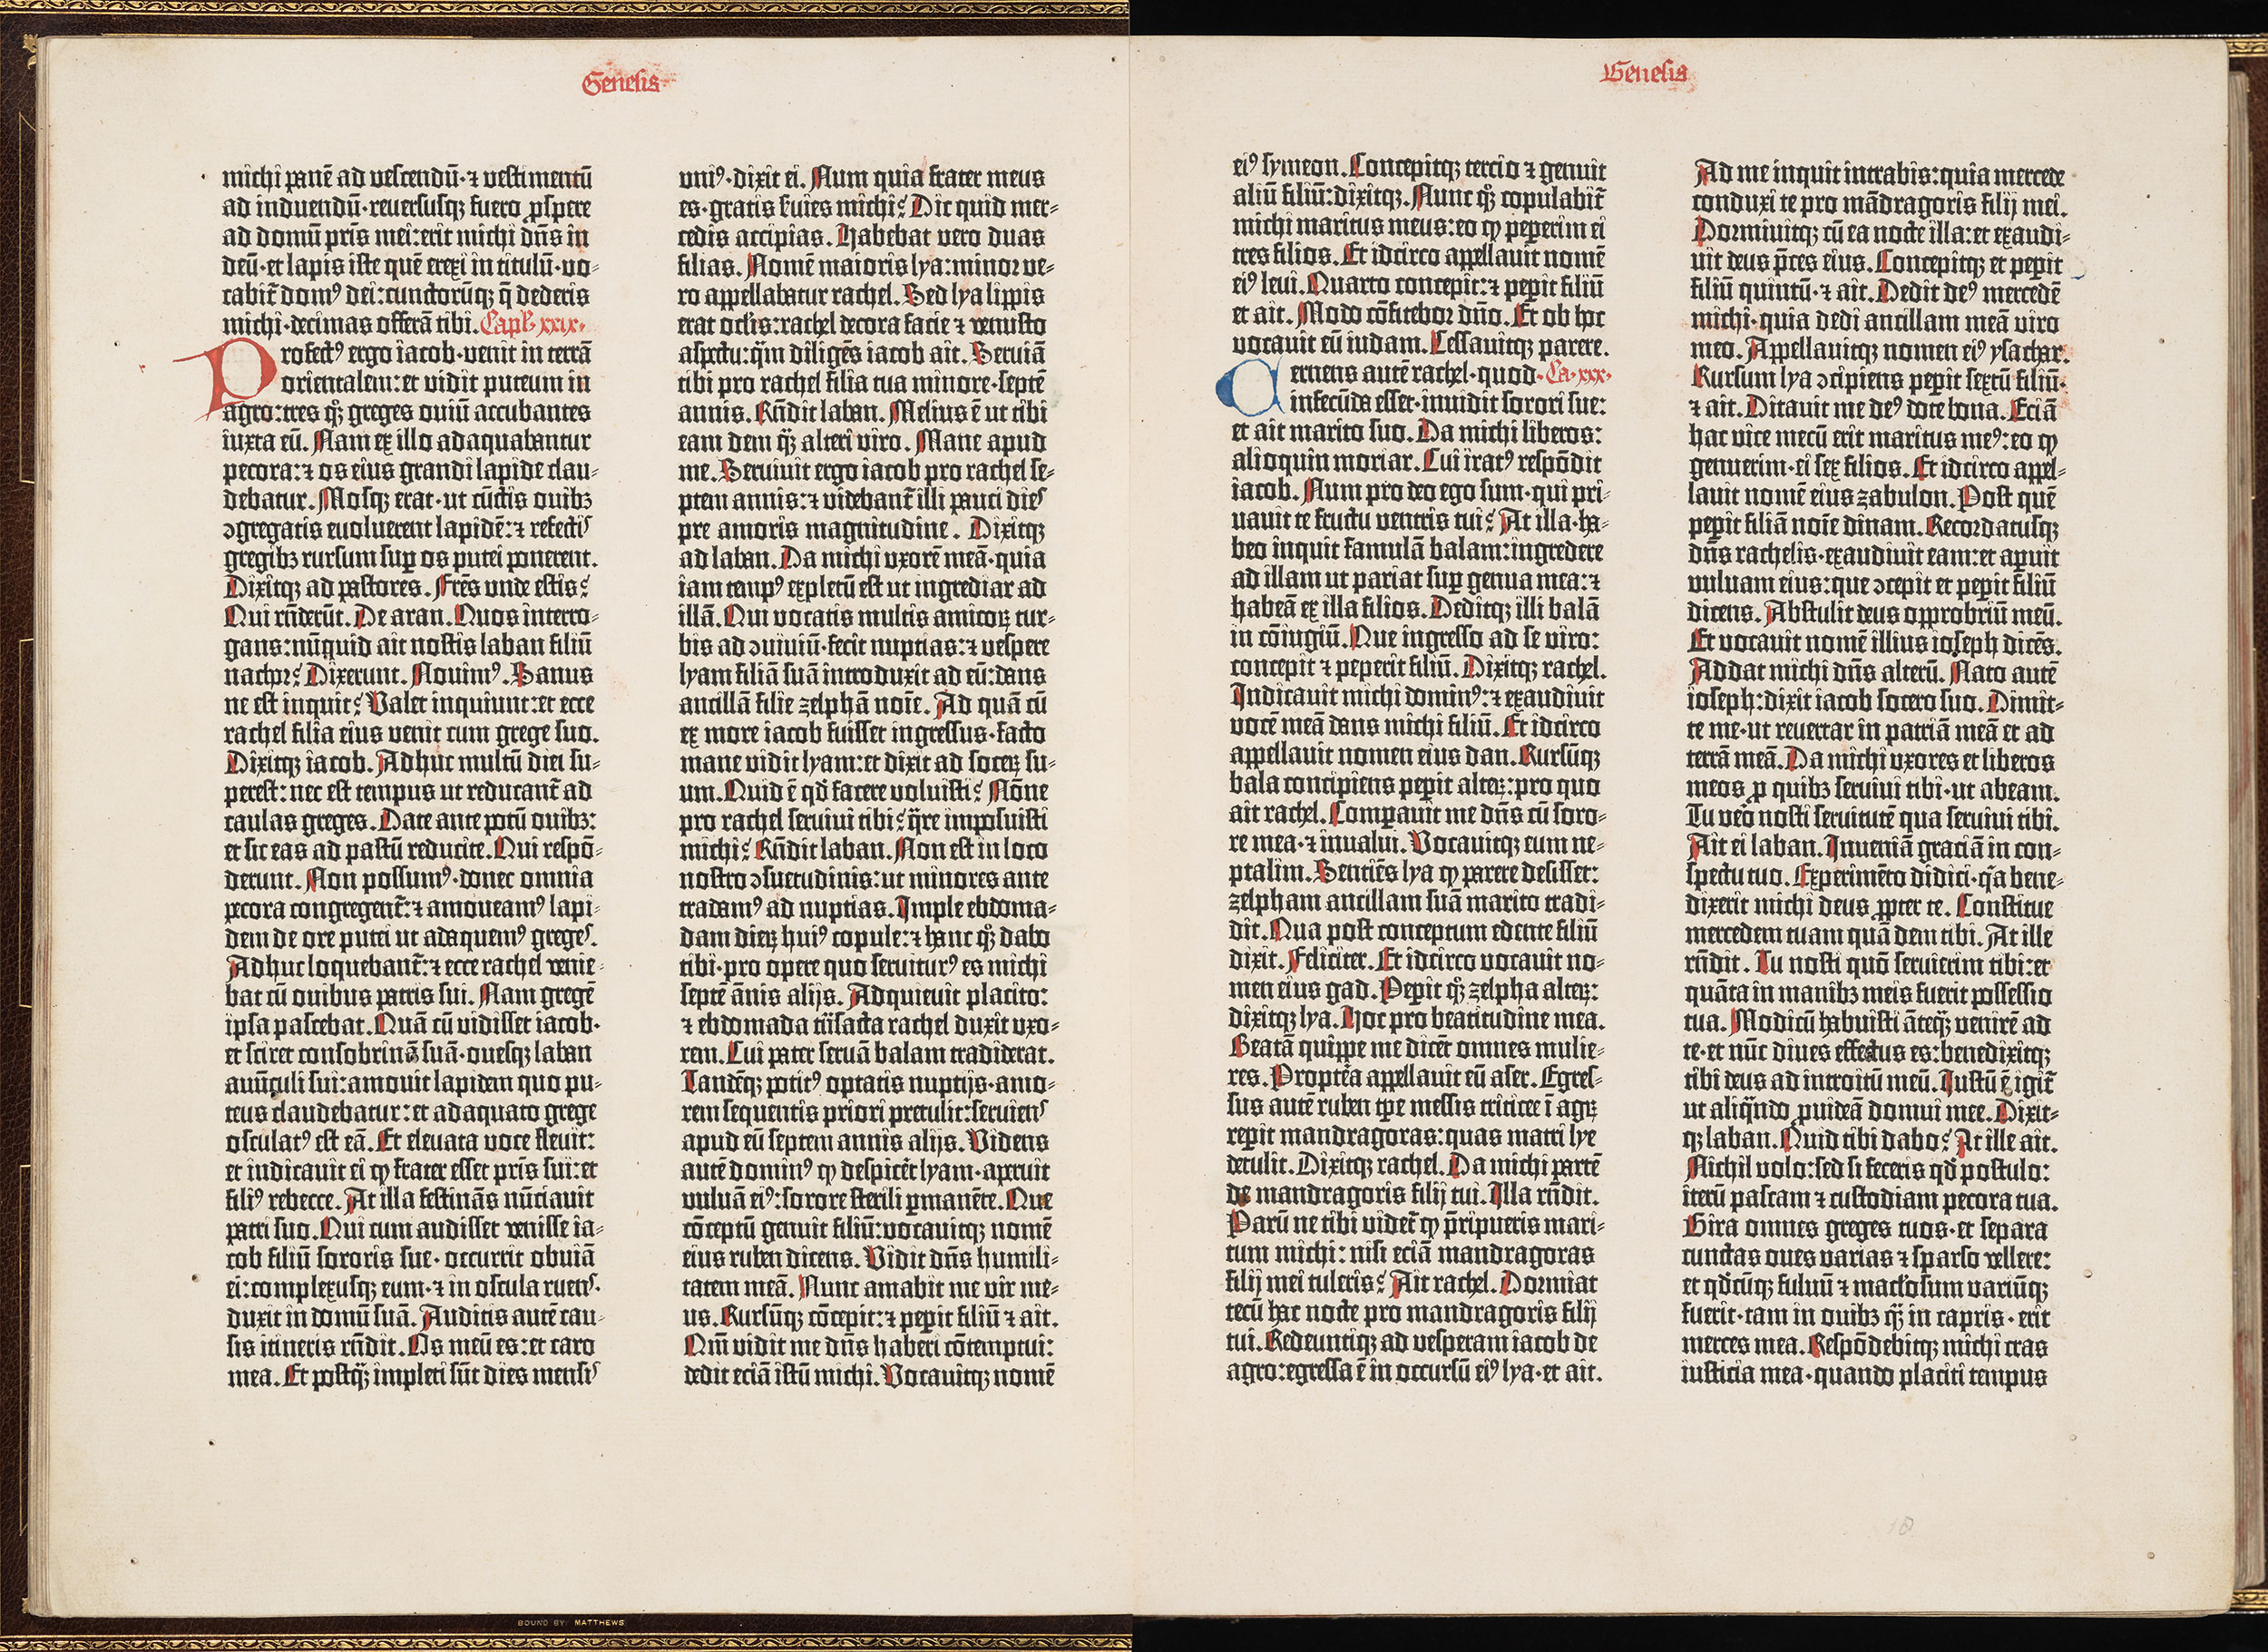 Genesis
michi panē ad vescendū·⁊ vestimentū
ad induendū·reversusqꝫ fuero ꝓspere
ad domū pr̄is mei:erit michi dn̄s in
deū·et lapis iste quē erexi in titulū·vo⸗
cabit᷑ domꝰ dei:cunctorūqꝫ q̄ dederis
michi·decimas offerā tibi. Capl̓·xxix·
Profectꝰ ergo iacob·venit in terrā
orientalem:et vidit puteum in
agro:tres qꝫ greges oviū accubantes
iuxta eū. Nam ex illo adaquabantur
pecora:⁊ os eius grandi lapide clau⸗
debatur. Mosqꝫ erat·ut cūctis ovibꝫ
ↄgregatis evolverent lapidē:⁊ refectis
gregibꝫ rursum suꝑ os putei ponerent.
Dixitqꝫ ad pastores. Fr̄es unde estis?
Qui rn̄derūt. De aran. Quos interro⸗
gans:nūquid ait nostis laban filiū
nachor? Dixerunt. Novimꝰ. Sanus
ne est inquit? Valet inquiunt:et ecce
rachel filia eius venit cum grege suo.
Dixitqꝫ iacob. Adhuc multū diei su⸗
perest:nec est tempus ut reducant᷑ ad
caulas greges. Date ante potū ovibꝫ:
et sic eas ad pastū reducite. Qui respō⸗
derunt. Non possumꝰ·donec omnia
pecora congregent᷑:⁊ amoveamꝰ lapi⸗
dem de ore putei ut adaquemꝰ greges.
Adhuc loquebant᷑:⁊ ecce rachel venie⸗
bat cū ovibus patris sui. Nam gregē
ipsa pascebat. Quā cū vidisset iacob·
et sciret consobrinā suā·ovesqꝫ laban
avūculi sui:amovit lapidem quo pu⸗
teus claudebatur:et adaquato grege
osculatꝰ est eā. Et elevata voce flevit:
et indicavit ei ꝙ frater esset pr̄is sui:et
filiꝰ rebecce. At illa festinās nūciavit
patri suo. Qui cum audisset venisse ia⸗
cob filiū sororis sue·occurrit obviā
ei:complexusqꝫ eum·⁊ in oscula ruens·
duxit in domū suā. Auditis autē cau⸗
sis itineris rn̄dit. Os meū es:et caro
mea. Et postqꝫ̄ impleti sūt dies mensis
vniꝰ·dixit ei. Num quia frater meus
es·gratis s̓vies michi? Dic quid mer⸗
cedis accipias. Habebat vero duas
filias. Nomē maioris lya:minor ve⸗
ro appellabatur rachel. Sed lya lippis
erat ocl̓is:rachel decora facie ⁊ venusto
aspectu:q̄m diligēs iacob ait. Serviā
tibi pro rachel filia tua minore·septē
annis. Rn̄dit laban. Melius ē ut tibi
eam dem qꝫ̄ alteri viro. Mane apud
me. Servivit ergo iacob pro rachel se⸗
ptem annis:⁊ videbant᷑ illi pauci dies
pre amoris magnitudine. Dixitqꝫ
ad laban. Da michi vxorē meā·quia
iam tempꝰ expletū est ut ingrediar ad
illā. Qui vocatis multis amicoꝝ tur⸗
bis ad ↄviviū·fecit nuptias:⁊ vespere
lyam filiā suā introduxit ad eū:dans
ancillā filie zelphā noīe. Ad quā cū
ex more iacob fuisset ingressus·facto
mane vidit lyam:et dixit ad soceꝝ su⸗
um. Quid ē qd̓ facere voluisti? Nōne
pro rachel servivi tibi? q̄re imposuisti
michi? Rn̄dit laban. Non est in loco
nostro ↄsuetudinis:ut minores ante
tradamꝰ ad nuptias. Imple ebdoma⸗
dam dieꝝ huiꝰ copule:⁊ hanc qꝫ dabo
tibi·pro opere quo serviturꝰ es michi
septē ānis alijs. Adquievit placito:
⁊ ebdomada trāsacta rachel duxit vxo⸗
rem. Cui pater servā balam tradiderat.
Tandēqꝫ potitꝰ optatis nuptijs·amo⸗
rem sequentis priori pretulit:serviens
apud eū septem annis alijs. Videns
autē dominꝰ ꝙ despicēt lyam·aperuit
vulvā eiꝰ:sorore sterili ꝑmanēte. Que
cōceptū genuit filiū:vocavitqꝫ nomē
eius ruben dicens. Vidit dn̄s humili⸗
tatem meā. Nunc amabit me vir me⸗
us. Rursūqꝫ cōcepit:⁊ peꝑit filiū ⁊ ait.
Qm̄ vidit me dn̄s haberi cōtemptui:
dedit eciā istū michi. Vocavitqꝫ nomē
Genesis
eiꝰ symeon. Concepitqꝫ tercio ⁊ genuit
aliū filiū:dixitqꝫ. Nunc qꝫ copulabit᷑
michi maritus meus:eo ꝙ peꝑerim ei
tres filios. Et idcirco appellavit nomē
eiꝰ levi. Quarto concepit:⁊ peꝑit filiū
et ait. Modo cōfitebor dn̄o. Et ob hoc
vocavit eū iudam. Cessavitqꝫ parere.
Cernens autē rachel·quod Ca·xxx·
infecūda esset·invidit sorori sue:
et ait marito suo. Da michi liberos:
alioquin moriar. Cui iratꝰ respōdit
iacob. Num pro deo ego sum·qui pri⸗
vavit te fructu ventris tui? At illa·ha⸗
beo inquit famulā balam:ingredere
ad illam ut pariat suꝑ genua mea:⁊
habeā ex illa filios. Deditqꝫ illi balā
in cōiugiū. Que ingresso ad se viro:
concepit ⁊ peperit filiū. Dixitqꝫ rachel.
Iudicavit michi dominꝰ:⁊ exaudivit
vocē meā dans michi filiū. Et idcirco
appellavit nomen eius dan. Rursūqꝫ
bala concipiens peꝑit alteꝝ:pro quo
ait rachel. Comꝑavit me dn̄s cū soro⸗
re mea·⁊ invalui. Vocavitqꝫ eum ne⸗
ptalim. Sentiēs lya ꝙ parere desisset:
zelpham ancillam suā marito tradi⸗
dit. Qua post conceptum edente filiū
dixit. Feliciter. Et idcirco vocavit no⸗
men eius gad. Peꝑit qꝫ zelpha alteꝝ:
dixitqꝫ lya. Hoc pro beatitudine mea.
Beatā quippe me dicēt omnes mulie⸗
res. Propt̓ea appellavit eū aser. Egres⸗
sus autē ruben tꝑe messis triticee ī agꝝ
reperit mandragoras:quas matri lye
detulit. Dixitqꝫ rachel. Da michi partē
de mandragoris filij tui. Illa rn̄dit.
Parū ne tibi videt᷑ ꝙ p̄ripueris mari⸗
tum michi:nisi eciā mandragoras
filij mei tuleris? Ait rachel. Dormiat
tecū hac nocte pro mandragoris filij
tui. Redeuntiqꝫ ad vesperam iacob de
agro:egressa ē in occursū eiꝰ lya·et ait.
Ad me inquit intrabis:quia mercede
conduxi te pro mādragoris filij mei.
Dormivitqꝫ cū ea nocte illa:et exaudi⸗
vit deus p̄ces eius. Concepitqꝫ et peꝑit
filiū quintū·⁊ ait. Dedit deꝰ mercedē
michi·quia dedi ancillam meā viro
meo. Appellavitqꝫ nomen eiꝰ ysachar.
Rursum lya ↄcipiens peꝑit sextū filiū·
⁊ ait. Ditavit me deꝰ dote bona. Eciā
hac vice mecū erit maritus meꝰ:eo ꝙ
genuerim·ei sex filios. Et idcirco appel⸗
lavit nomē eius zabulon. Post quē
peꝑit filiā noīe dinam. Recordatusqꝫ
dn̄s rachelis·exaudivit eam:et aꝑuit
vulvam eius:que ↄcepit et peꝑit filiū
dicens. Abstulit deus opprobriū meū.
Et vocavit nomē illius ioseph dicēs.
Addat michi dn̄s alterū. Nato autē
ioseph:dixit iacob socero suo. Dimit⸗
te me·ut revertar in patriā meā et ad
terrā meā. Da michi vxores et liberos
meos ꝓ quibꝫ servivi tibi·ut abeam.
Tu veō nosti servitutē qua servivi tibi.
Ait ei laban. Inveniā graciā in con⸗
spectu tuo. Experimēto didici·q̄a bene⸗
dixerit michi deus ꝓpter te. Constitue
mercedem tuam quā dem tibi. At ille
rn̄dit. Tu nosti quō servierim tibi:et
quāta in manibꝫ meis fuerit possessio
tua. Modicū habuisti āteqꝫ̄ venirē ad
te·et nūc dives effectus es:benedixitqꝫ
tibi deus ad introitū meū. Iustū ē igit᷑
ut aliqn̄do ꝓvideā domui mee. Dixit⸗
qꝫ laban. Quid tibi dabo? At ille ait.
Nichil volo:sed si feceris qd̓ postulo:
iterū pascam ⁊ custodiam pecora tua.
Gira omnes greges tuos·et separa
cunctas oves varias ⁊ sparso vellere:
et qd̓cūqꝫ fulvū ⁊ macl̓osum variūqꝫ
fuerit·tam in ovibꝫ qꝫ̄ in capris·erit
merces mea. Respōdebitqꝫ michi cras
iusticia mea·quando placiti tempus
BOUND BY MATTHEWS